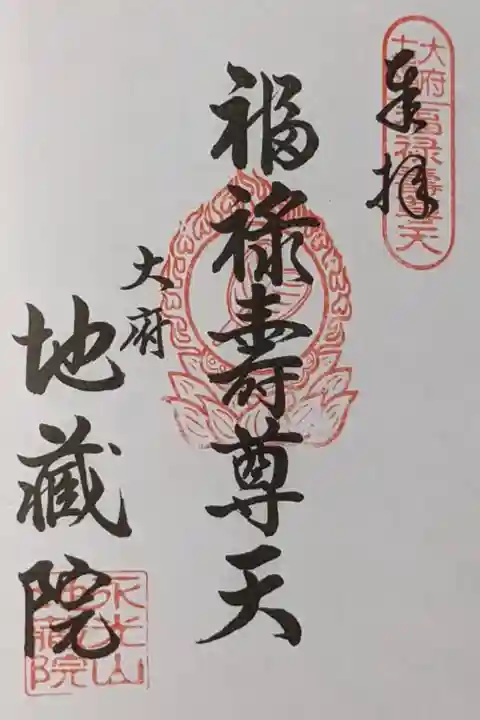 奉拝
福禄壽尊天
大府
地蔵院
大府
七福
福禄壽尊天
永光山
地蔵院